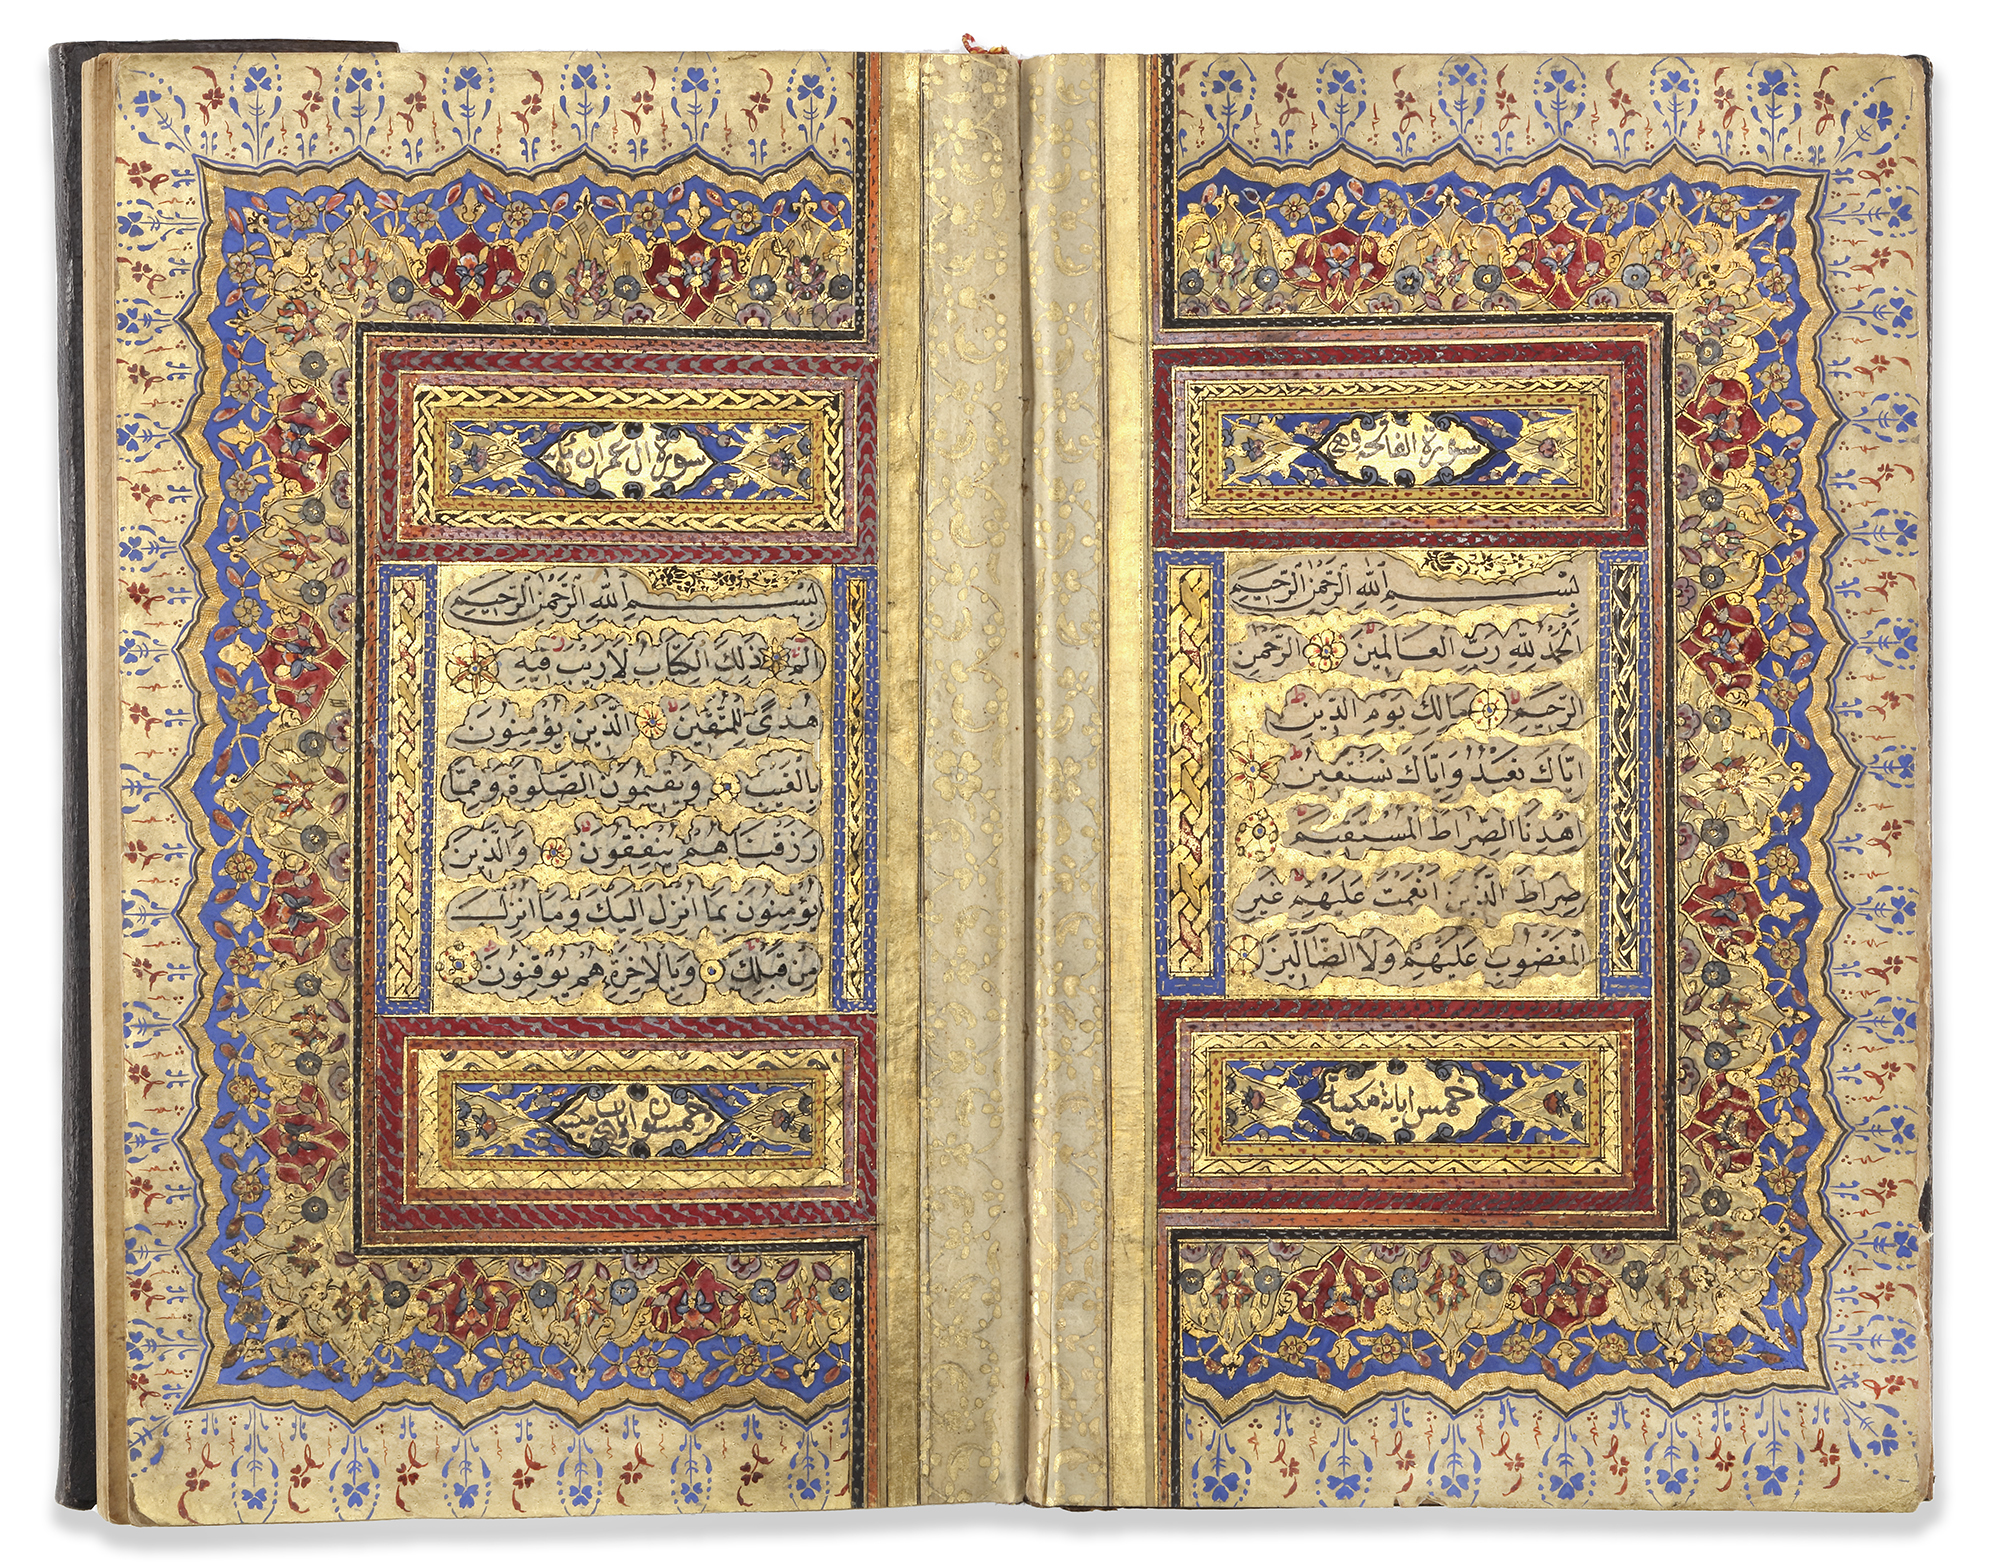 سورة الفاتحة وهي
بِسْمِ اللهِ الرَّحْمٰنِ الرَّحِيمِ
اَلْحَمْدُ لِلّٰهِ رَبِّ الْعَالَمِينَ الرَّحْمٰنِ
الرَّحِيمِ مَالِكِ يَوْمِ الدِّينِ
اِيَّاكَ نَعْبُدُ وَاِيَّاكَ نَسْتَعِينُ
اِهْدِنَا الصِّرَاطَ الْمُسْتَقِيمَ
صِرَاطَ الَّذِينَ اَنْعَمْتَ عَلَيْهِمْ غَيْرِ
الْمَغْضُوبِ عَلَيْهِمْ وَلَا الضَّالِّينَ
خمس اياته مكية
سورة ال عمران
بِسْمِ اللهِ الرَّحْمٰنِ الرَّحِيمِ
الم ذٰلِكَ الْكِتَابُ لَا رَيْبَ فِيهِ
هُدًى لِلْمُتَّقِينَ الَّذِينَ يُؤْمِنُونَ
بِالْغَيْبِ وَيُقِيمُونَ الصَّلٰوةَ وَمِمَّا
رَزَقْنَاهُمْ يُنْفِقُونَ وَالَّذِينَ
يُؤْمِنُونَ بِمَا اُنْزِلَ اِلَيْكَ وَمَا اُنْزِلَ
مِنْ قَبْلِكَ وَبِالْاٰخِرَةِ هُمْ يُوقِنُونَ
خمسون